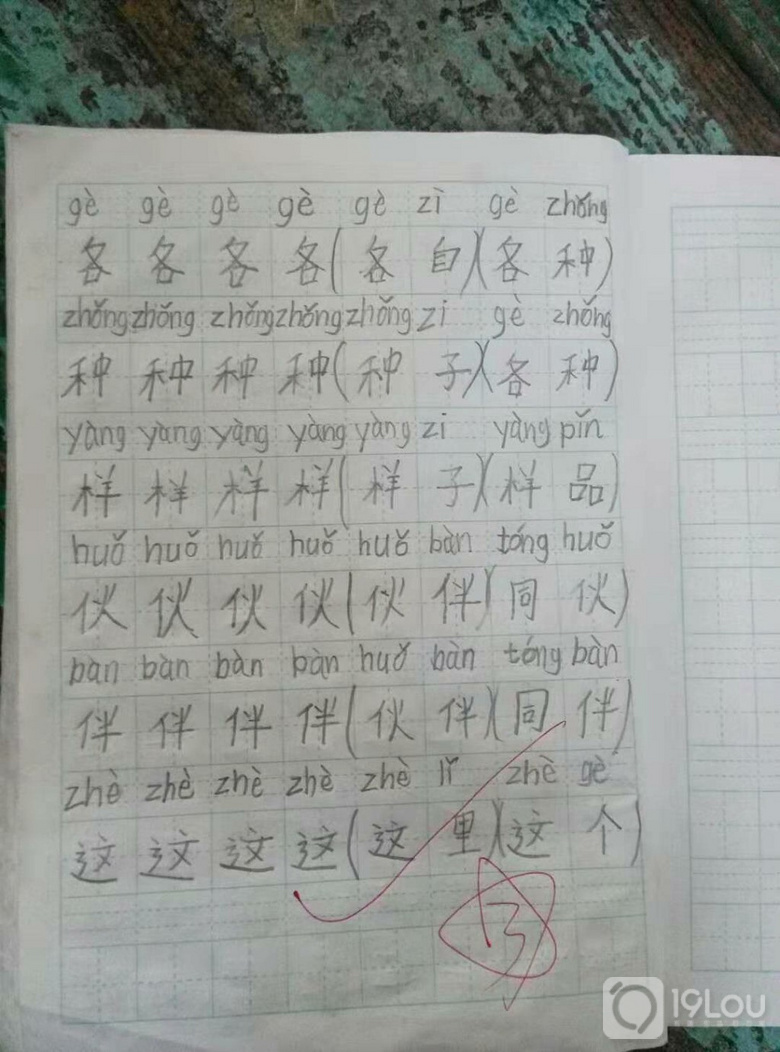 gè gè gè gè gè zì gè zhǒng
各 各 各 各(各 自)(各 种)
zhǒng zhǒng zhǒng zhǒng zhǒng zi gè zhǒng
种 种 种 种(种 子)(各 种)
yàng yàng yàng yàng yàng zi yàng pǐn
样 样 样 样(样 子)(样 品)
huǒ huǒ huǒ huǒ huǒ bàn tóng huǒ
伙 伙 伙 伙(伙 伴)(同 伙)
bàn bàn bàn bàn huǒ bàn tóng bàn
伴 伴 伴 伴(伙 伴)(同 伴)
zhè zhè zhè zhè zhè lǐ zhè gè
这 这 这 这(这 里)(这 个)
19Lou